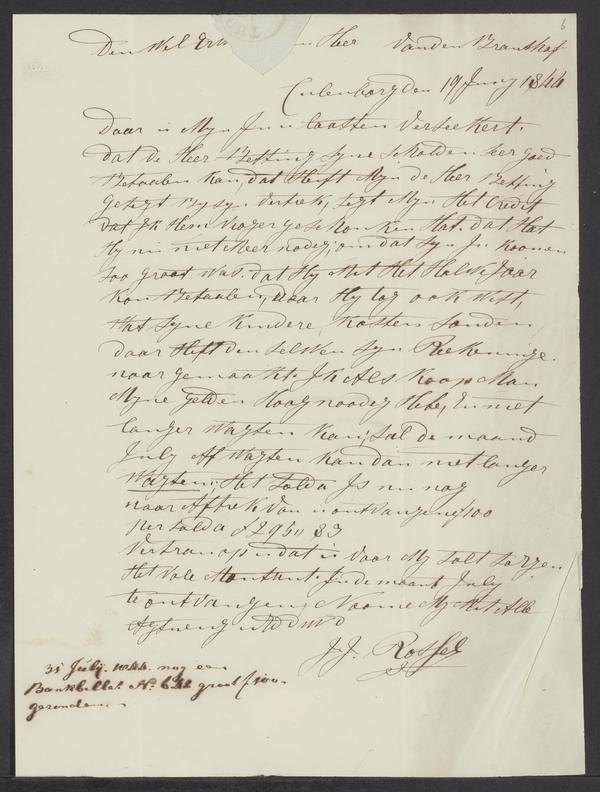 6
Den Wel Erw Heer van den Brantshof
Culenborg den 19 Juny 1844
Daar is Myn In u laasten Verseekert.
dat de Heer Betting syne scholden seer goed
Betaalen kan, dat Heeft Myn de Heer Betting
gesegt By syn Vertrek, segt Myn Het Credit
dat Ik Hem Vroger geschonken Hat. dat Hat
Hy nu niet Meer nodeg, om dat syn In koomen
soo groot was. dat Hy Met Het Halve Jaar
kon Betaalen, daar Hy tog ook Wist,
Wat syne Kindere kosten sonden
daar Heft den selven syn Reekeninge
naar gemaakt. Ik Als Koop Man
Myne gelden Hoog noodeg Hebe, En niet
langer Wagten kan, sal de maand
July Af Wagten kan dan niet langer
Wagten, Het Salda Is nu nog
naar Aftrek Van u ontvangene f 100
per Salda f 295,, 83
Vertrou op u dat u Voor My solt sorgen
Het Vole Montant In de maant July
te ontvangen, Noome My Met Alle
Agtneng
J. J. Rossel
31 Julij 1844 nog een
Bankbillet No 642 groot f 100.
gezonden.